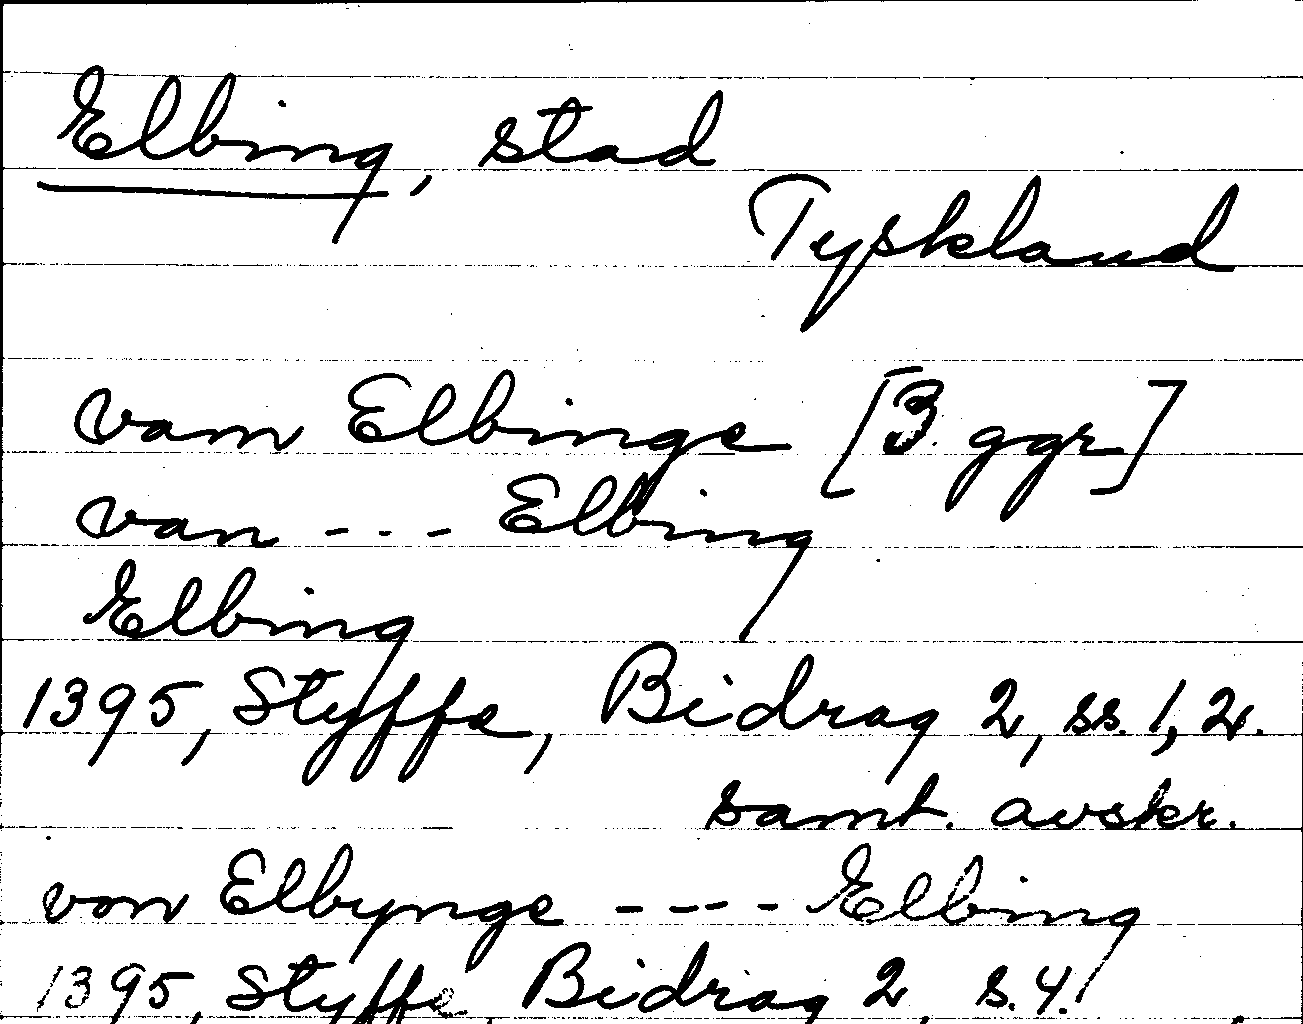 Elbing, stad
Tyskland
vam Elbinge [3 ggr]
van --- Elbing
Elbing
1395, Styffe, Bidrag 2, ss. 1, 2.
samt. avskr.
von Elbynge ---- Elbing
1395, Styffe, Bidrag 2, s. 4.